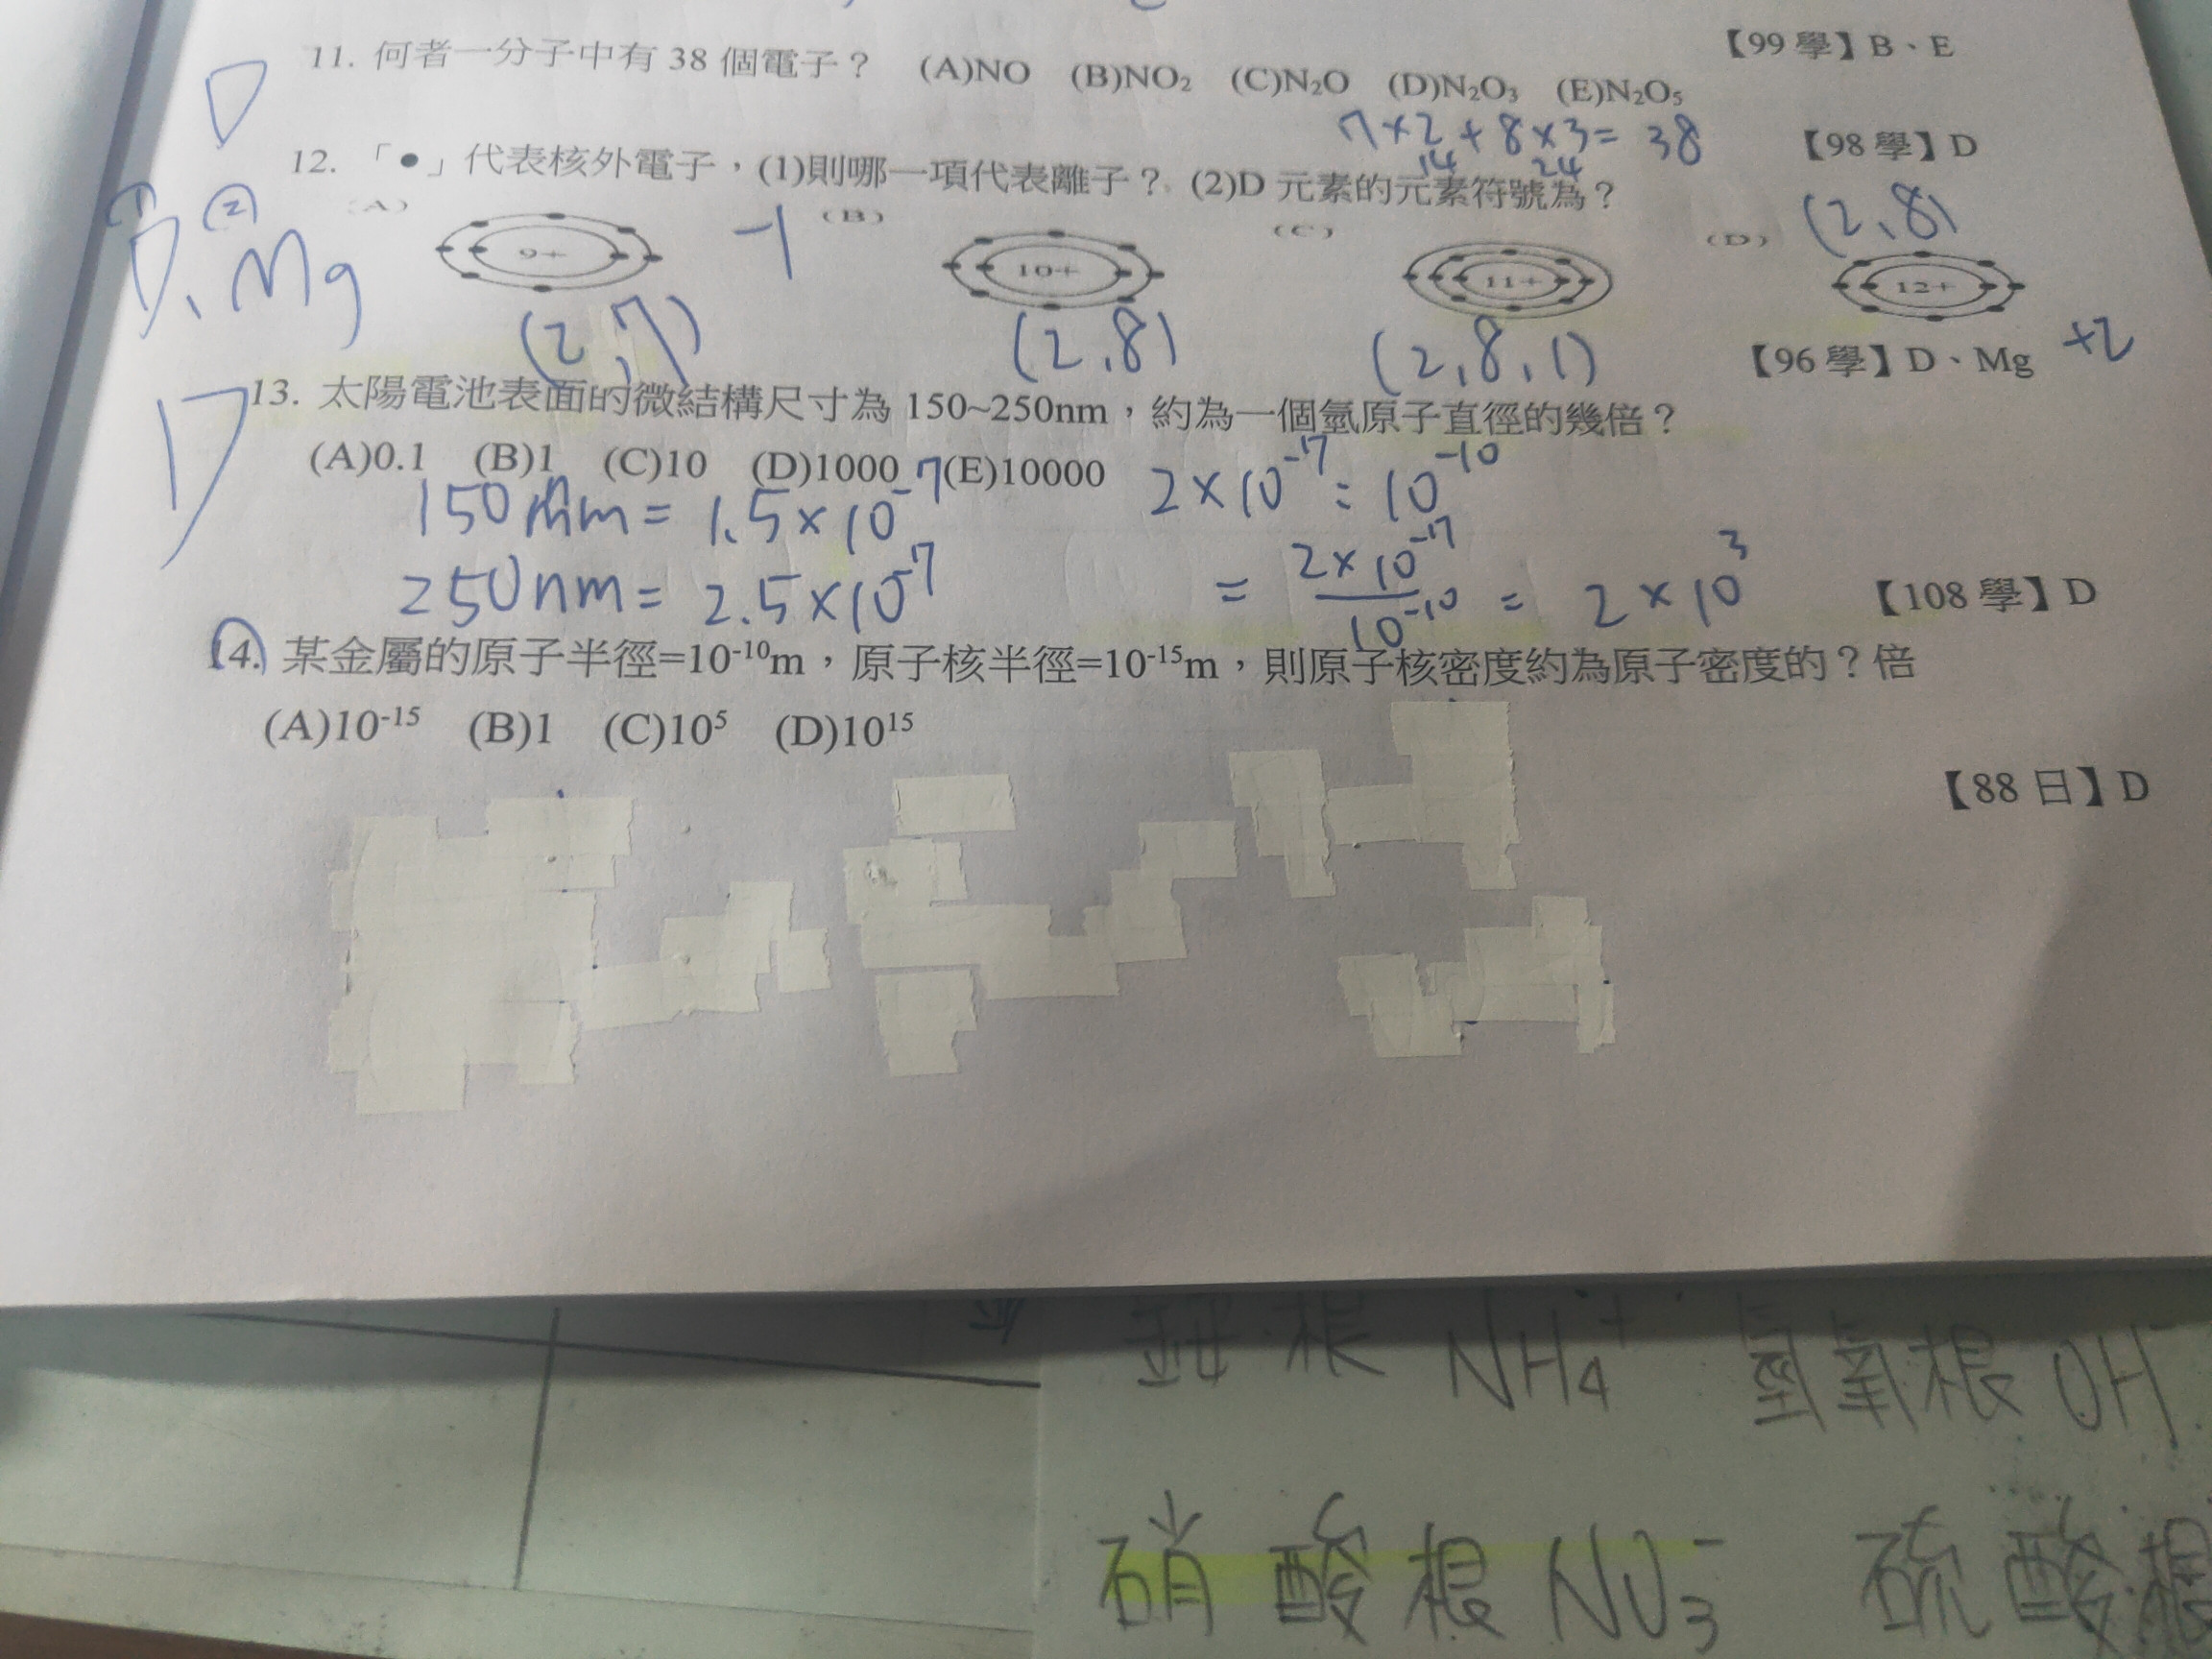 【99 學】B、E
11. 何者一分子中有 38 個電子？ (A)NO (B)NO₂ (C)N₂O (D)N₂O₃ (E)N₂O₅
D
7×2+8×3=38
14 24
【98 學】D
12. 「●」代表核外電子，(1)則哪一項代表離子？ (2)D 元素的元素符號為？
(1) (2)
D、Mg
(A) 9+ -1 (B) 10+ (C) 11+ (D) 12+ (2,8)
(2,7) (2,8) (2,8,1) +2
【96 學】D、Mg
13. 太陽電池表面的微結構尺寸為 150~250nm，約為一個氫原子直徑的幾倍？
D
(A)0.1 (B)1 (C)10 (D)1000 (E)10000
150nm = 1.5×10⁻⁷ 2×10⁻⁷ : 10⁻¹⁰
250nm = 2.5×10⁻⁷ = 2×10⁻⁷/10⁻¹⁰ = 2×10³
【108 學】D
14. 某金屬的原子半徑=10⁻¹⁰m，原子核半徑=10⁻¹⁵m，則原子核密度約為原子密度的？倍
(A)10⁻¹⁵ (B)1 (C)10⁵ (D)10¹⁵
【88 日】D
根 NH₄⁺ 氫氧根 OH⁻
硝酸根 NO₃⁻ 硫酸根